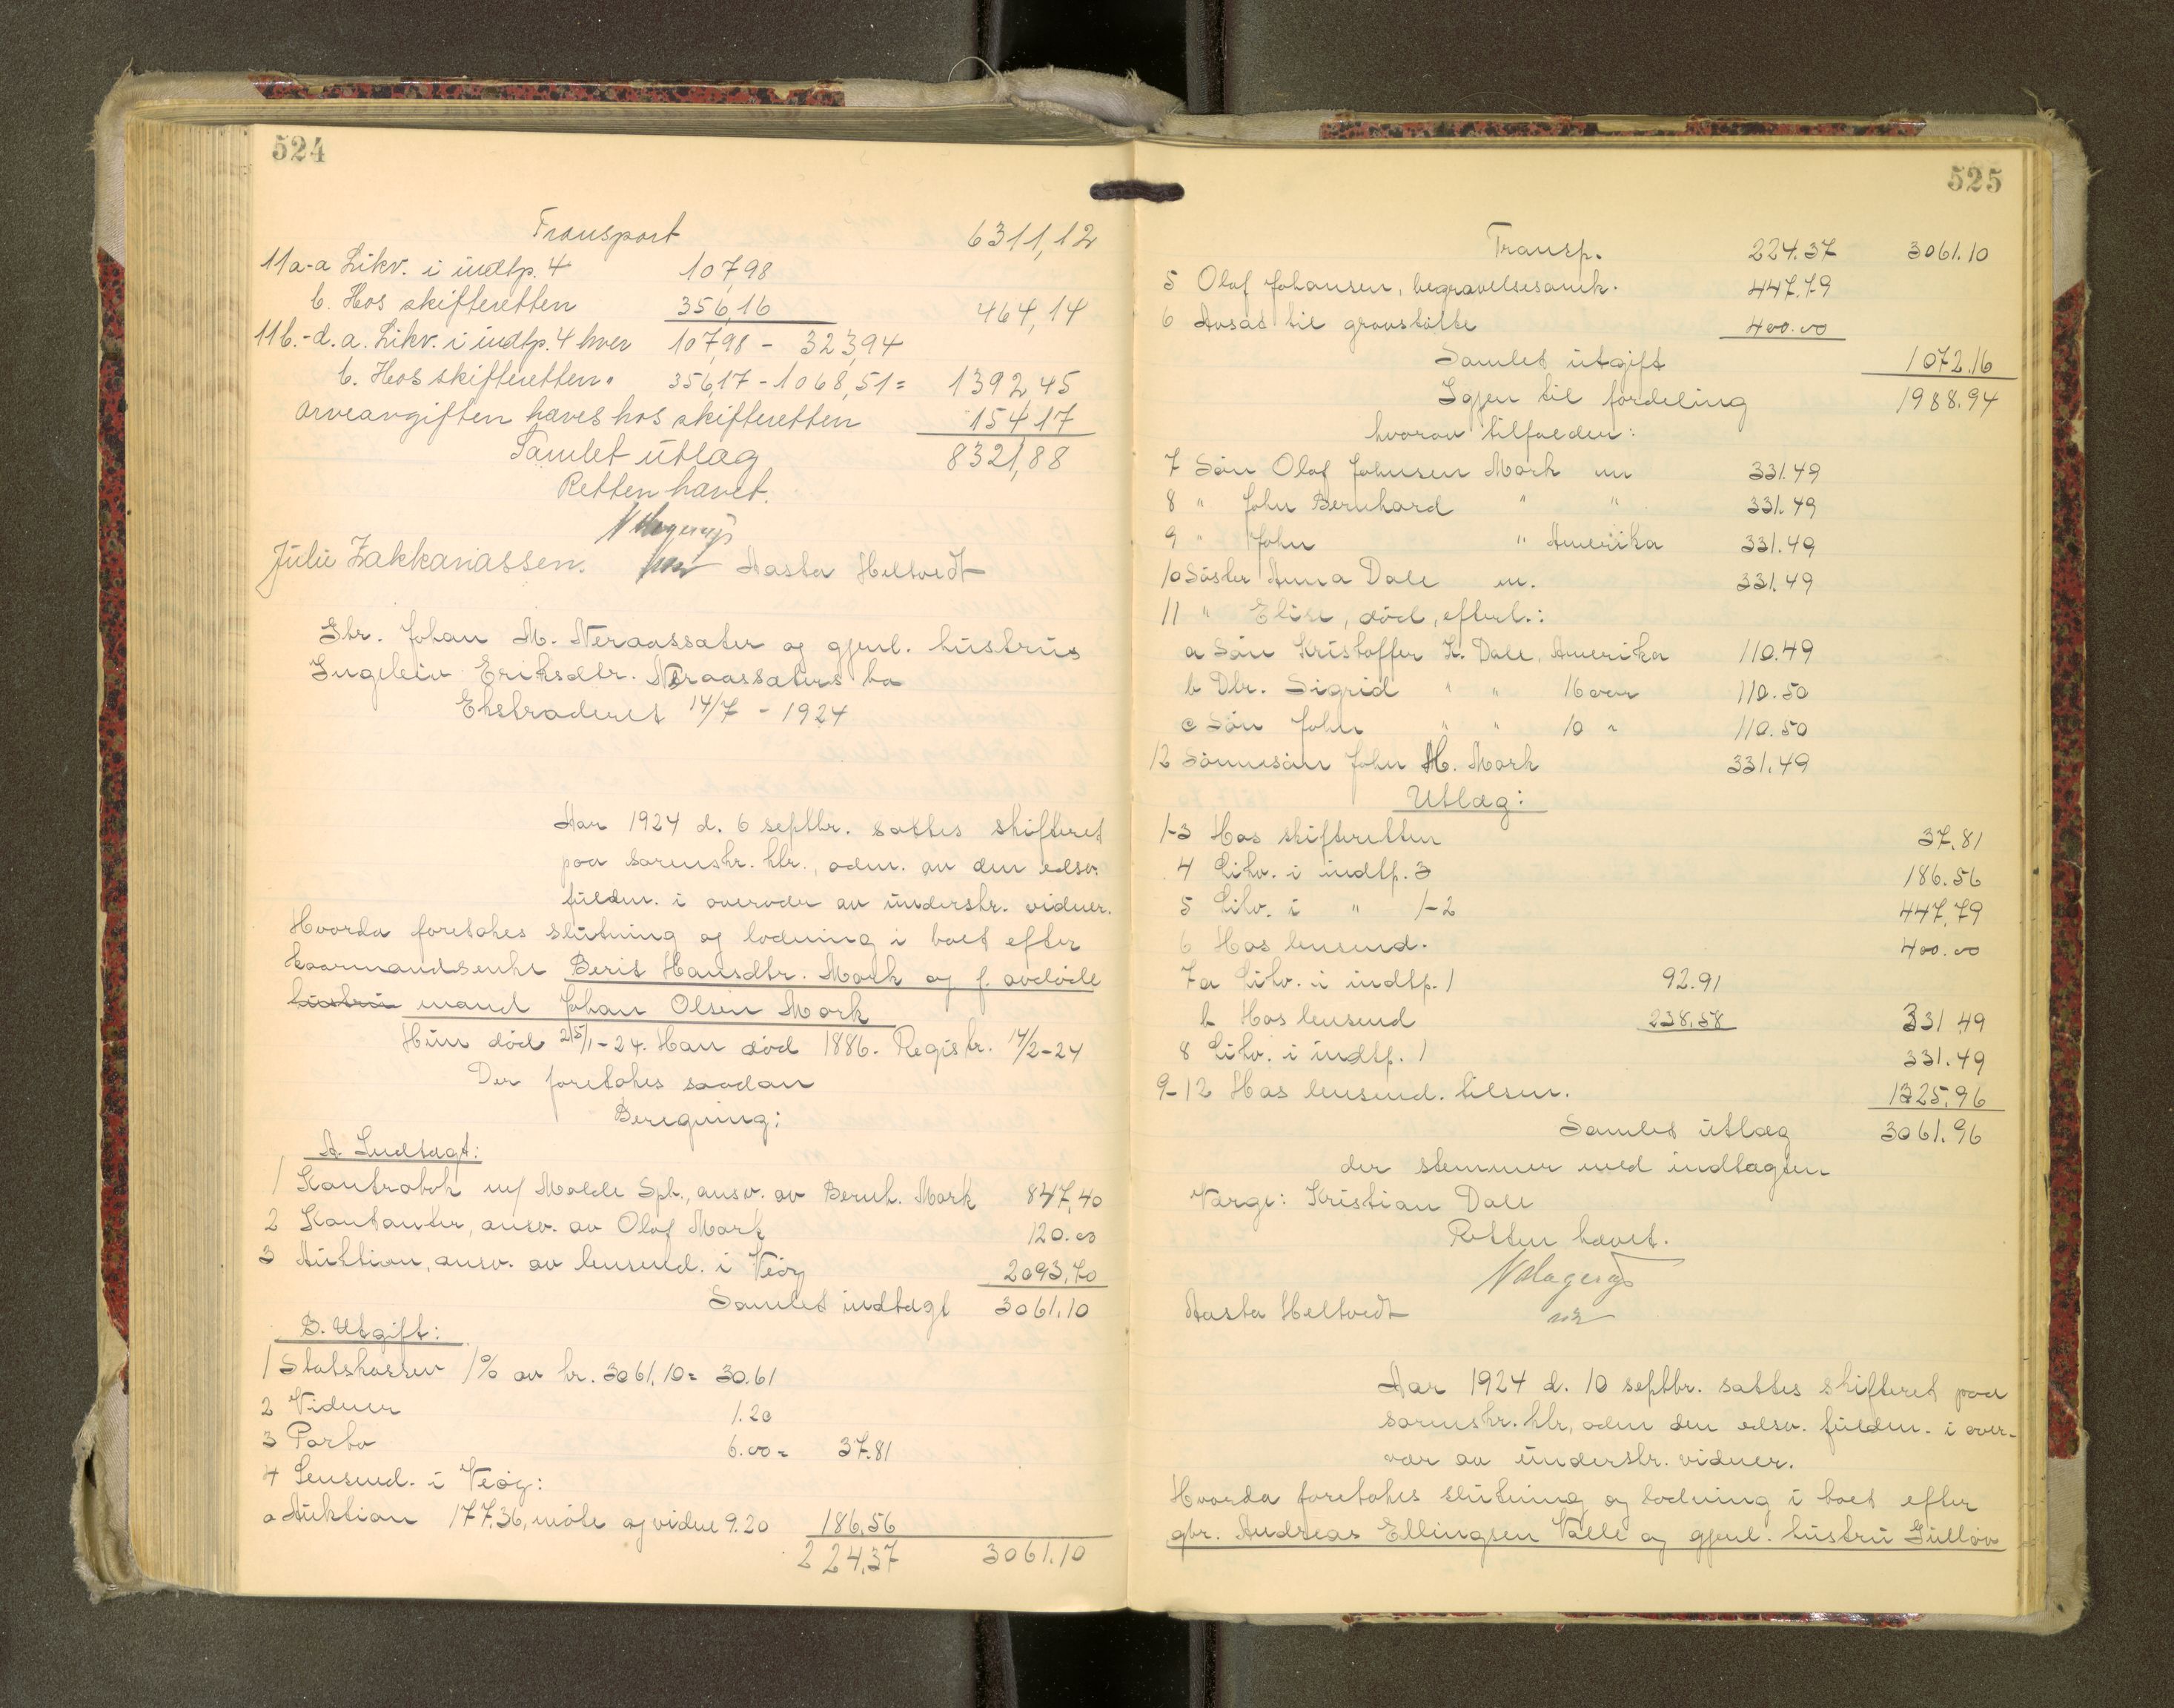 524
Transport 6311,12
11a-a Likv. i indtp. 4 107,98
b. Hos skifteretten 356,16 464,14
11b.-d. a. Likv. i indtp. 4 hver 107,98 - 323,94
b. Hos skifteretten " 356,17 - 1068,51 = 1392,45
Arveavgiften hæves hos skifteretten 154 17
Samlet utlæg 8321,88
Retten hævet.
Julie Zakkariassen. Aasta Heltvedt
Gbr. Johan M. Neraassæter og gjenl. hustrus
Ingeleiv Eriksdtr. Neraassæters bo
Ekstraderet 14/7 - 1924
Aar 1924 d. 6 septbr. sattes skifteret
paa sorenskr. ktr., adm. av den edsv.
fuldm. i overvær av underskr. vidner.
Hvorda foretokes slutning og lodning i boet efter
kaarmandsenke Berit Hansdtr. Mork og f. avdøde
hustru mand Johan Olsen Mork
Hun død 25/1-24. Han død 1886. Registr. 14/2-24
Der foretokes saadan
Beregning:
A. Indtægt:
1 Kontrabok m/ Molde Spb., ansv. av Bernh. Mork 847,40
2 Kontanter, ansv. av Olaf Mork 120.00
3 Auktion, ansv. av lensmd. i Veøy 2093,70
Samlet indtægt 3061.10
B. Utgift:
1 Statskassen 1% av kr. 3061.10 = 30.61
2 Vidner 1.20
3 Porto 6.00 = 37.81
4 Lensmd. i Veøy:
a Auktion 177,36, møte og vidne 9.20 186,56
224,37 3061.10
525
Transp. 224.37 3061.10
5 Olaf Johansen, begravelsesomk. 447.79
6 Avsat til gravstøtte 400.00
Samlet utgift 1072.16
Igjen til fordeling 1988.94
hvorav tilfalder:
7 Søn Olaf Johnsen Mork m 331.49
8 " John Bernhard " " 331.49
9 " John " Amerika 331.49
10 Søster Anna Dale m. 331.49
11 " Elise, død, efterl.:
a Søn Kristoffer K. Dale, Amerika 110.49
b Dtr. Sigrid " " 16 aar 110.50
c Søn John " " 10 " 110.50
12 Sønnesøn John H. Mork 331.49
Utlæg:
1-3 Hos skifteretten 37.81
4 Likv. i indtp. 3 186.56
5 Likv. i " 1-2 447,79
6 Hos lensmd. 400.00
7a Likv. i indtp. 1 92.91
b Hos lensmd 238,58 331 49
8 Likv. i indtp. 1 331.49
9-12 Hos lensmd. tilsm. 1325.96
Samlet utlæg 3061.96
der stemmer med indtægten
Verge: Kristian Dale
Retten hævet.
Aasta Heltvedt
Aar 1924 d. 10 septbr. sattes skifteret paa
sorenskr. ktr, adm den edsv. fuldm. i over-
vær av underskr. vidner.
Hvorda foretokes slutning og lodning i boet efter
gbr. Andreas Ellingsen Valle og gjenl. hustru Gulløv